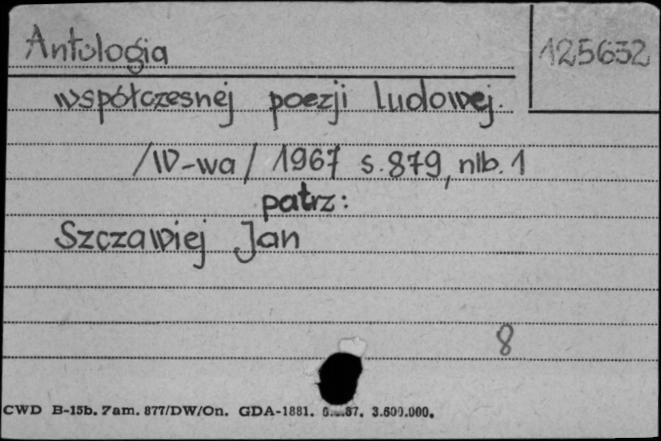 Antologia
125632
współczesnej poezji ludowej.
/W-wa/ 1967 s.879, nlb.1
patrz:
Szczawiej Jan
8
CWD B-15b. Zam. 877/DW/On. GDA-1881. 3.600.000.